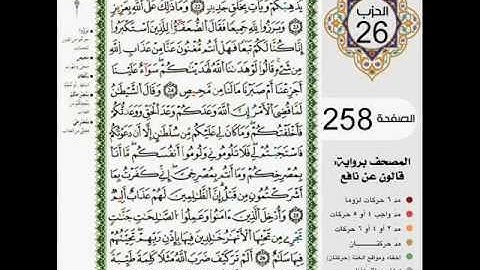 يذهبكم ويات بخلق جديد وما ذلك على الله بعزيز
وبرزوا لله جميعا فقال الضعفؤا للذين استكبروا
إنا كنا لكم تبعا فهل أنتم مغنون عنا من عذاب الله
من شيء قالوا لو هدينا الله لهدينكم سواء علينا
أجزعنا أم صبرنا ما لنا من محيص وقال الشيطن
لما قضي الأمر إن الله وعدكم وعد الحق ووعدتكم
فأخلفتكم وما كان لي عليكم من سلطن إلا أن دعوتكم
فاستجبتم لي فلا تلوموني ولوموا أنفسكم ما أنا
بمصرخكم وما أنتم بمصرخي إني كفرت بما
أشركتمون من قبل إن الظلمين لهم عذاب أليم
وأدخل الذين ءامنوا وعملوا الصلحت جنت
تجري من تحتها الأنهر خلدين فيها بإذن ربهم تحيتهم
فيها سلم ألم تر كيف ضرب الله مثلا كلمة طيبة
الحزب
26
الصفحة 258
المصحف برواية:
قالون عن نافع
مد ٦ حركات لزوما
مد واجب ٤ أو ٥ حركات
مد ٢ أو ٤ أو ٦ حركات
مد حركتان
إخفاء ومواقع الغنة (حركتان)